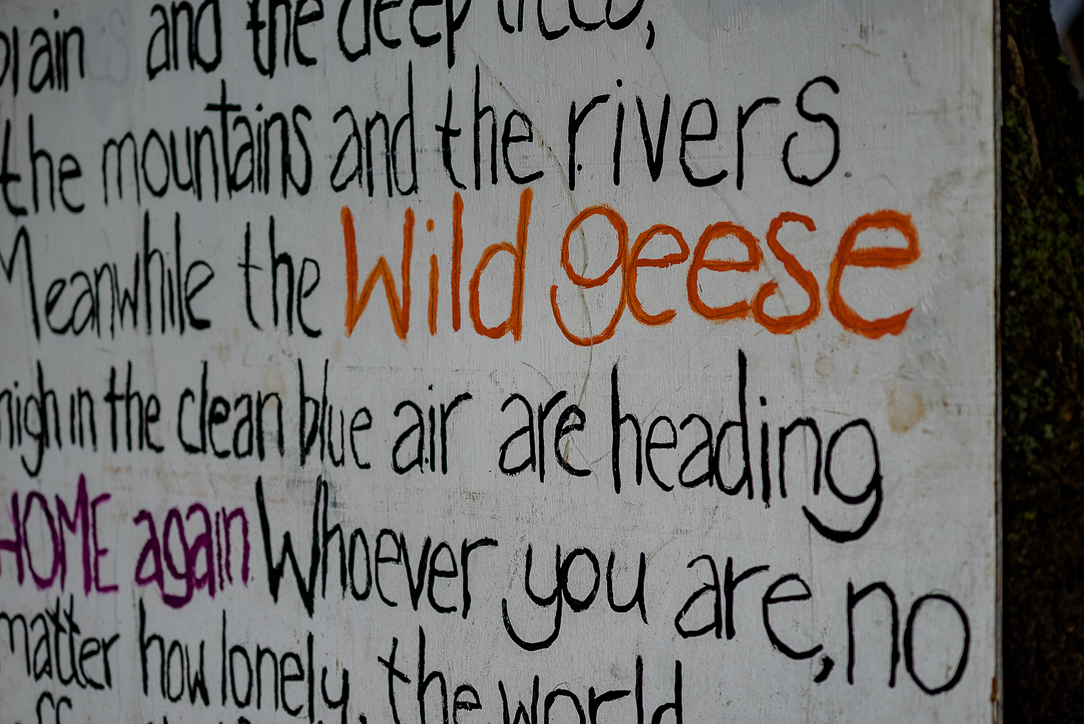 plain and the deep trees,
the mountains and the rivers
Meanwhile the Wild geese
high in the clean blue air are heading
HOME again Whoever you are, no
matter how lonely, the world